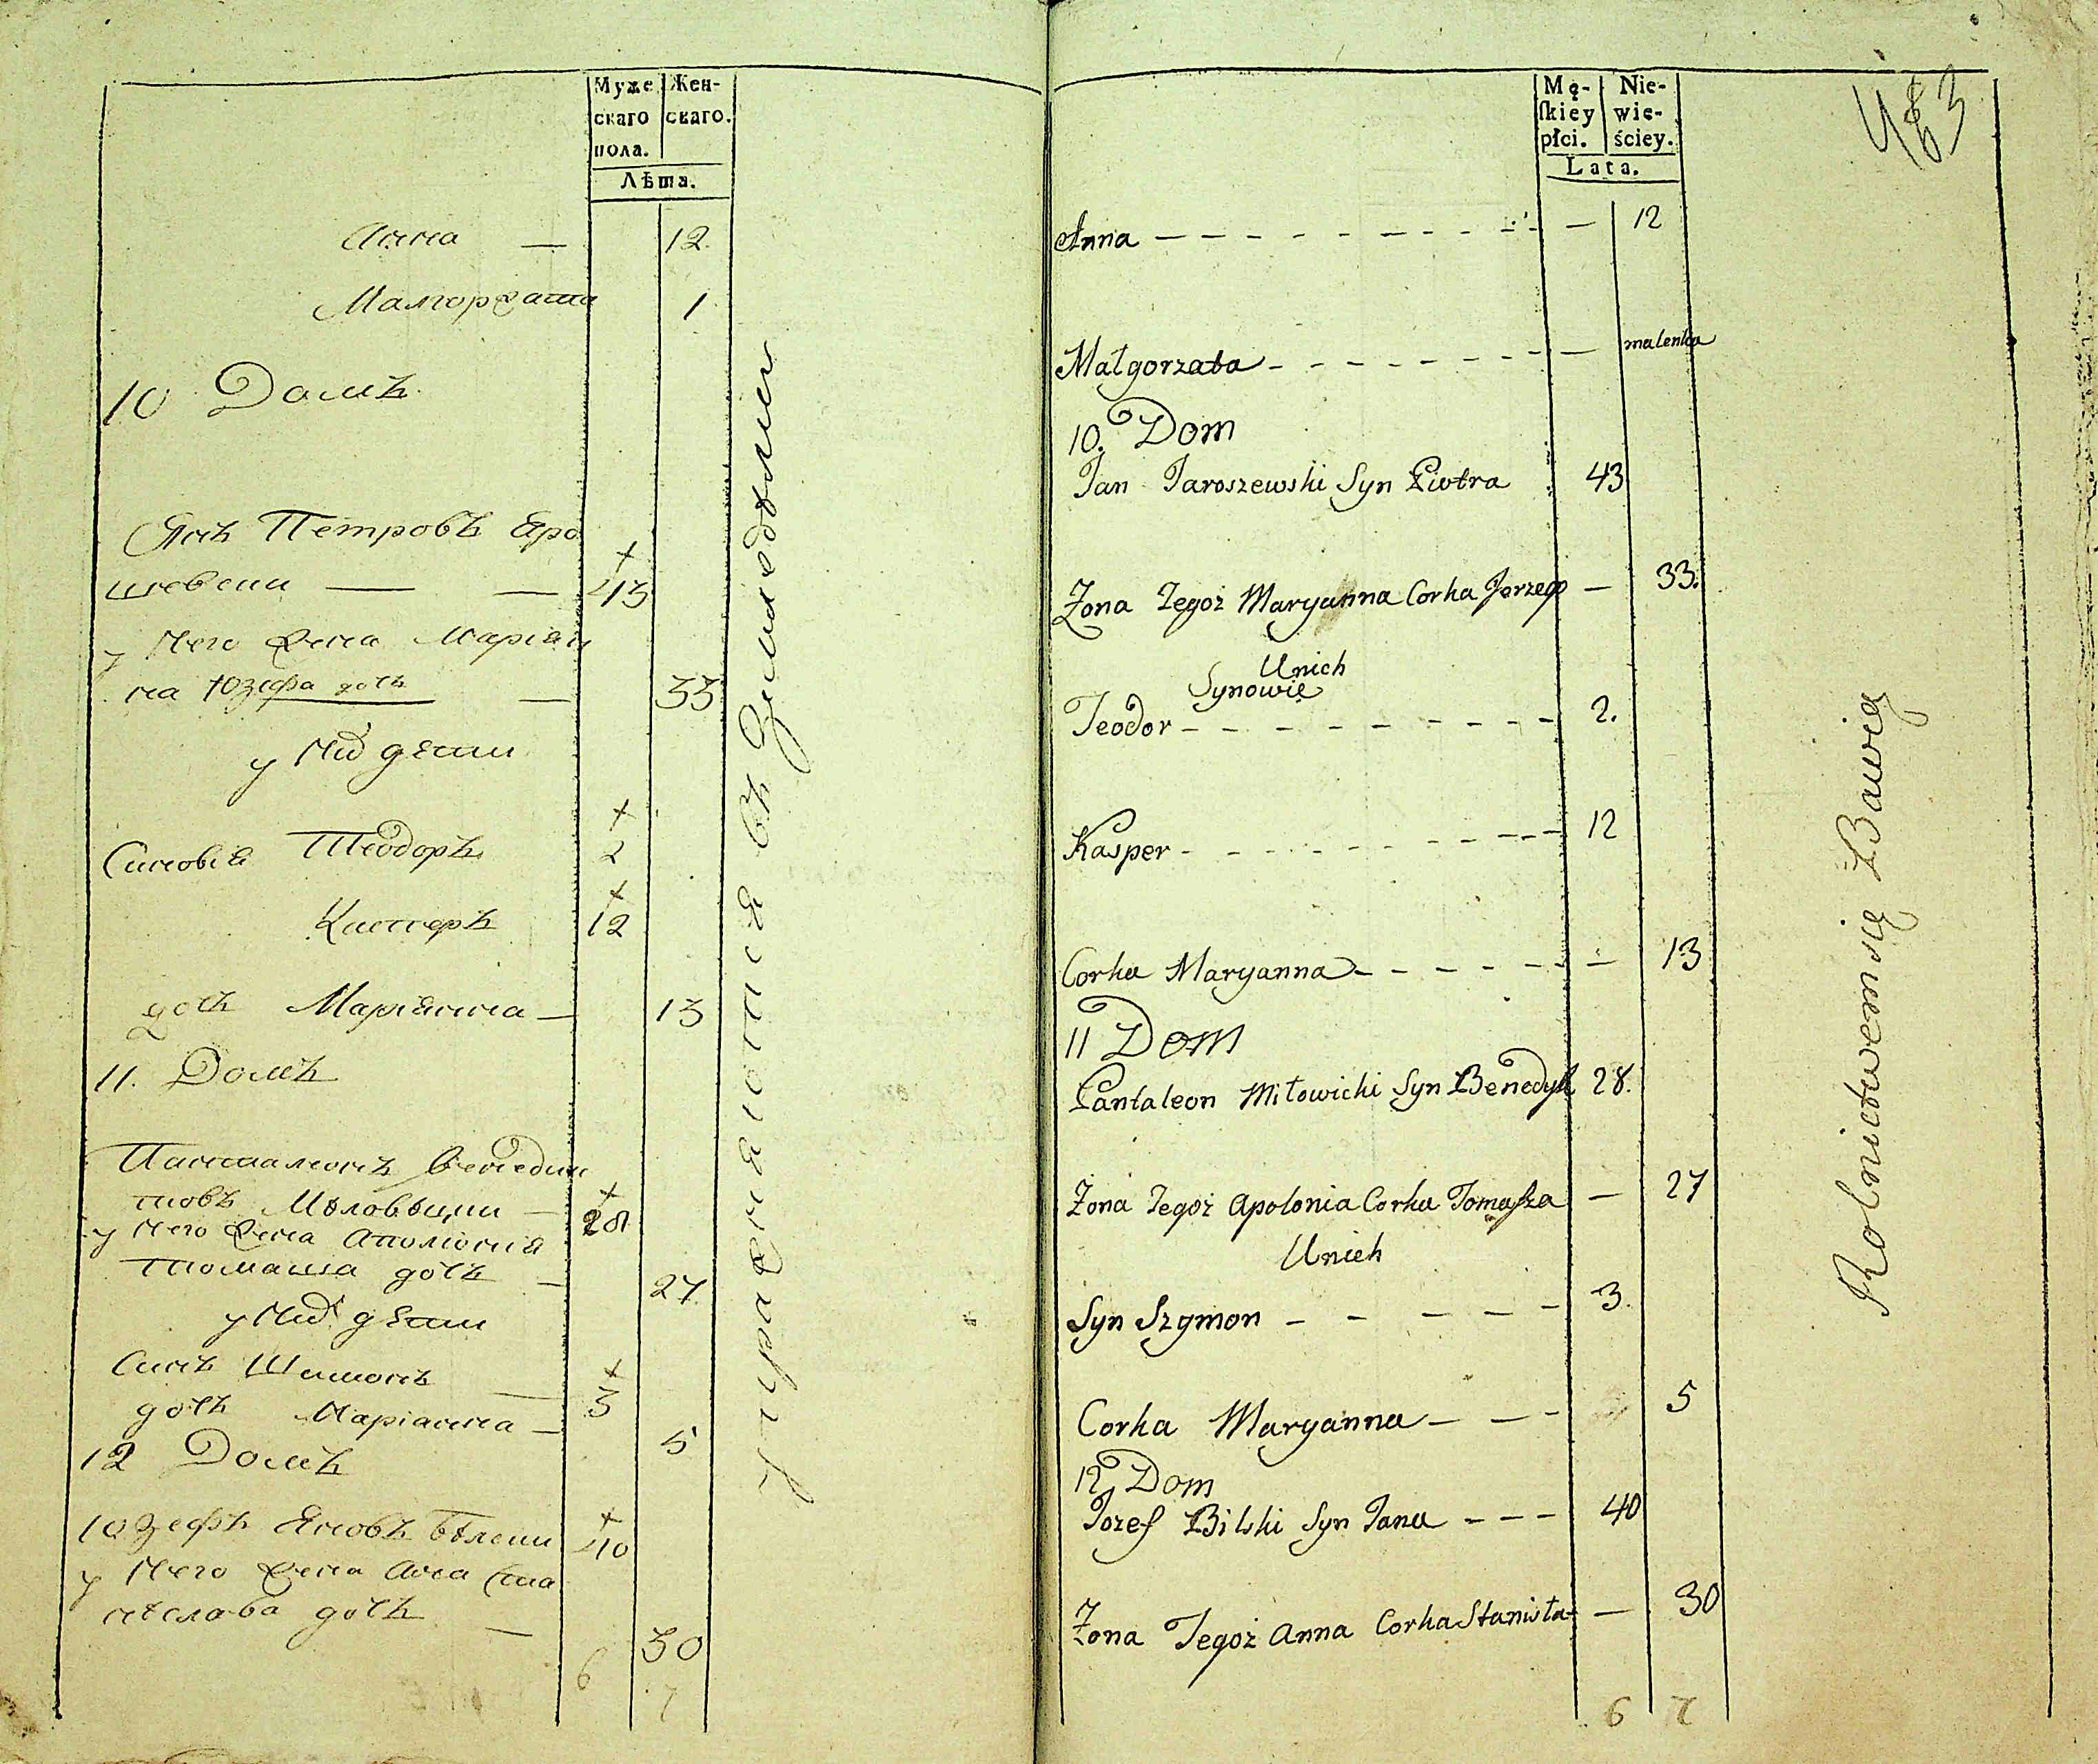 Муже
скаго
пола.
Жен-
скаго.
Лѣта.
Анна — 12.
Малгоржата 1
10 Домъ
Янъ Петровъ Яро
шевски — — 43
у него жена Маріан
на Юзефа дочь — 33
у ных дѣти
Синовія Теодоръ 2
Касперъ 12
дочь Маріянна — 13
11. Домъ
Панталеонъ Бенедик
товъ Мѣловицки — 28
у него жена Аполіонія
томаша дочь — 27
у ных дѣти
Синъ Шимонъ — 3
дочь Маріанна — 5
12 Домъ
Юзефъ Яновъ Бѣлски 40
у него жена Анна Ста
нѣслава дочь — 30
6 7
упражняются въ Земледѣлии
Mę-
ſkiey
płci.
Nie-
wie-
ściey.
Lata.
483
Anna — — 12
Małgorzata — — malenka
10. Dom
Jan Jaroszewski Syn Piotra 43
Zona Tegoż Maryanna Corka Jerzego — 33.
Unich
Synowie
Teodor — — 2.
Kasper — — 12
Corka Maryanna — — 13
11 Dom
Pantaleon Miłowicki Syn Benedyk 28.
Zona Tegoż Apolonia Corka Tomaſza — 27
Unich
Syn Szymon — — 3.
Corka Maryanna — — 5
12 Dom
Jozef Bilski Syn Jana — — — 40
Zona Tegoż Anna Corka Stanisła — 30
6 7
Rolnictwem się Bawią